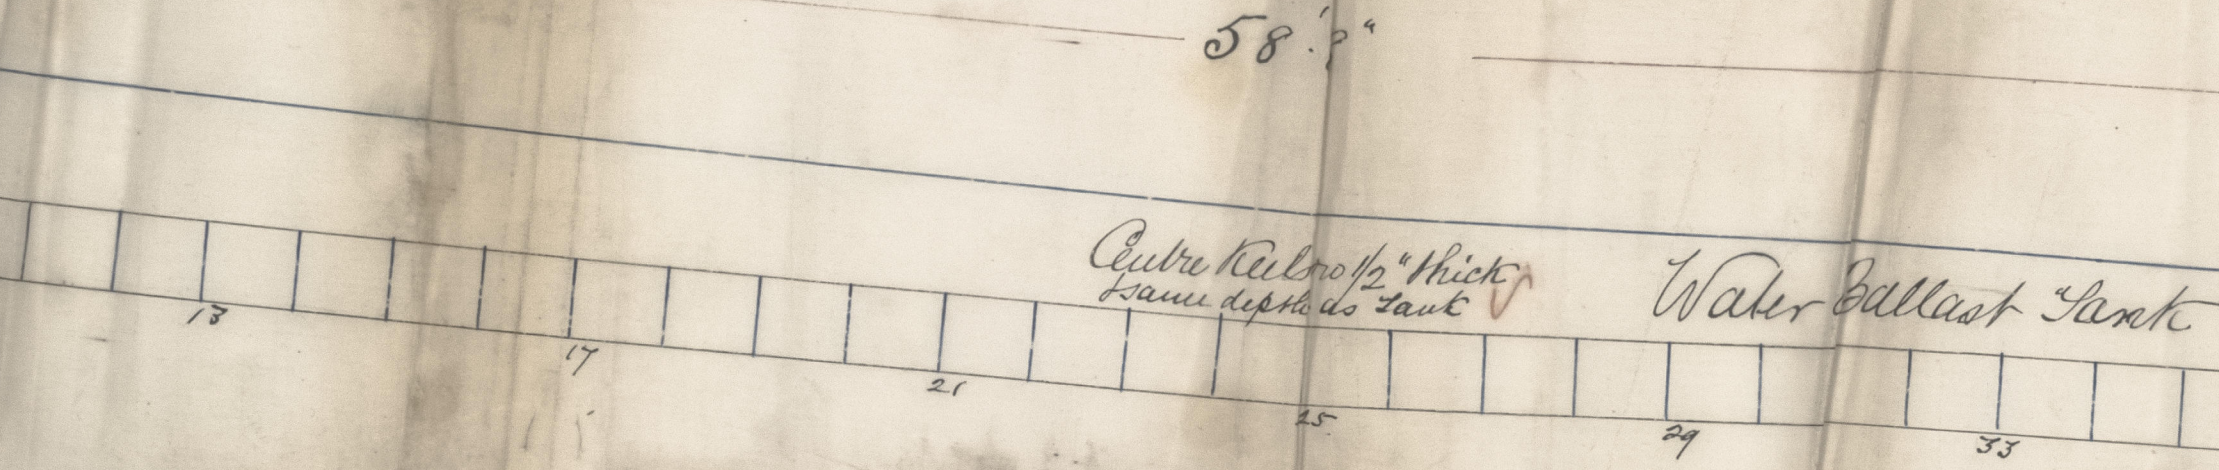 58'
Centre Keelson 1/2" thick
& same depth as Tank
Water Ballast Tank
13
17
21
25
29
33